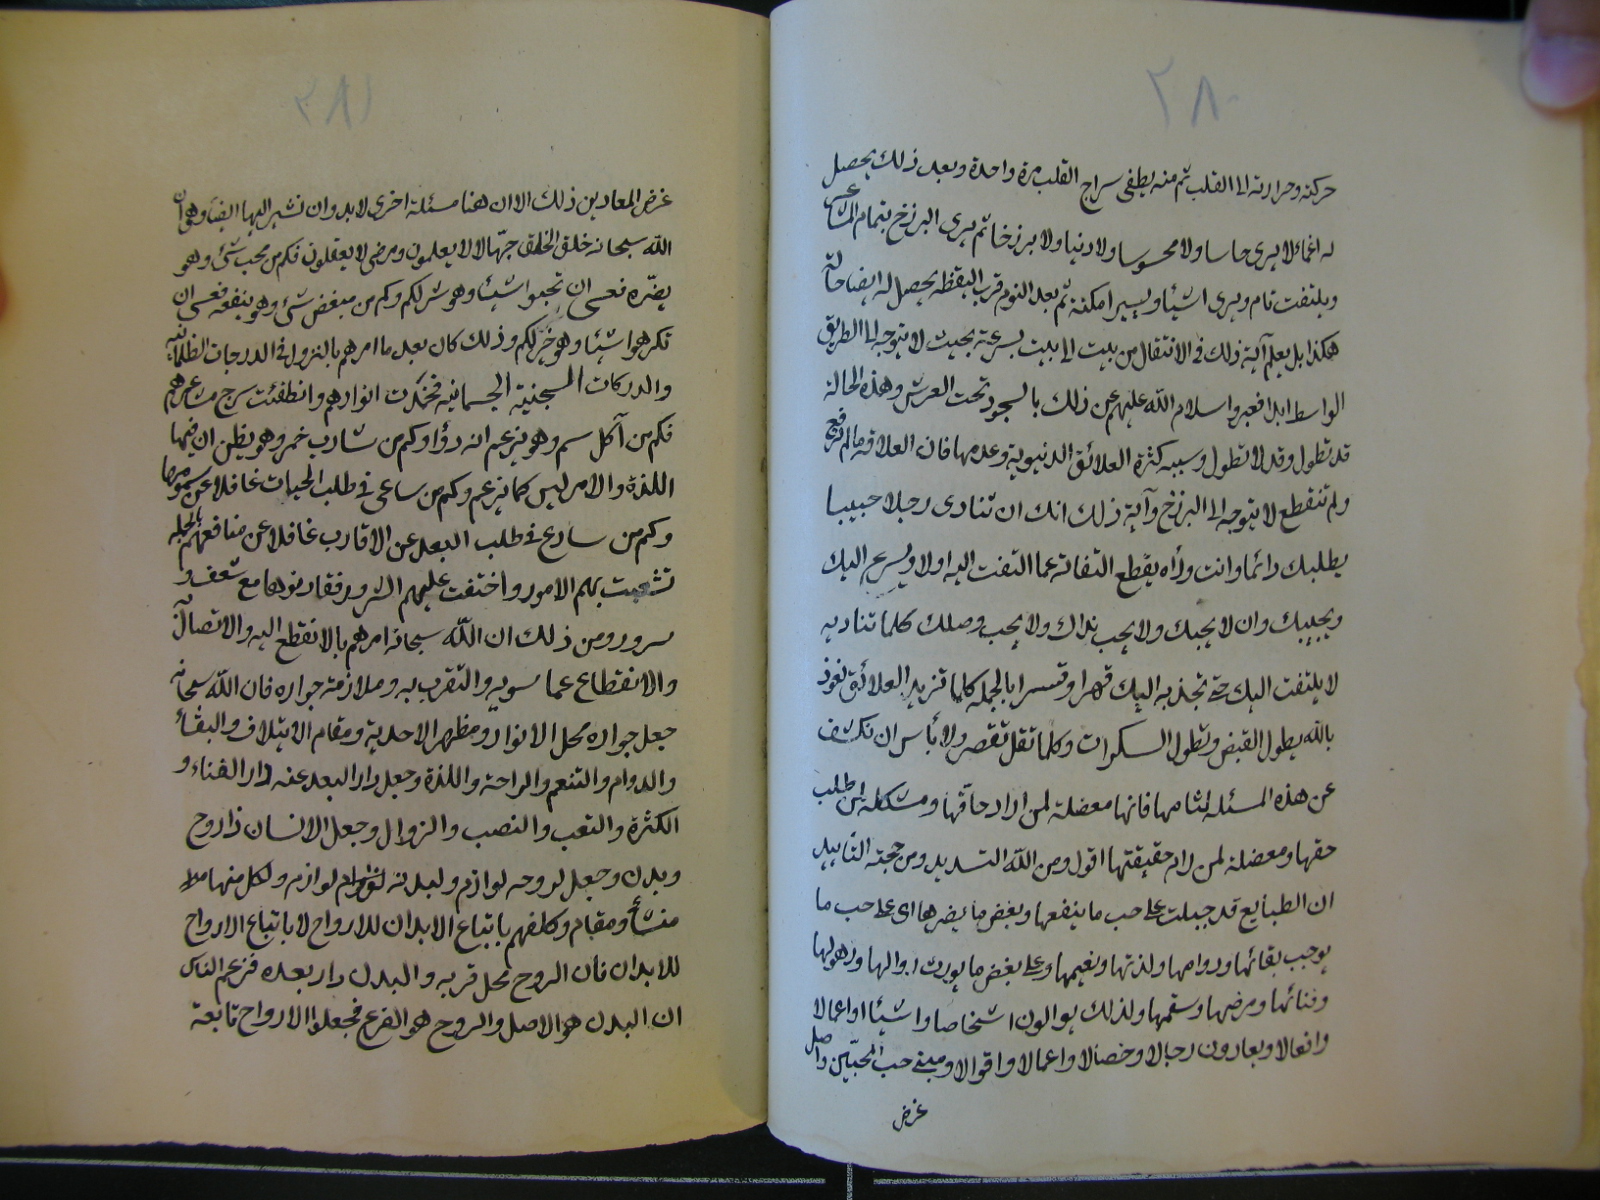 ٢٨٠
حركته وحرارته الى القلب ثم منه يطفى سراج القلب مرة واحدة وبعد ذلك يحصل
له اغماء لا يرى حاسا ولا محسوسا ولا دنيا ولا برزخا ثم يرى البرزخ بتمام المشاعر
ويلتفت تام ويرى اشياء ويسير امكنة ثم بعد النوم قرب اليقظة يحصل له ايضا حالة
هكذا بل يعلم آية ذلك في الانتقال من بيت الى بيت بسرعة بحيث لا يتوجه الى الطريق
الواسط ابدا فعبروا سلام الله عليهم عن ذلك بالسجود تحت العرش وهذه الحالة
قد تطول وقد لا تطول وسببه كثرة العلائق الدنيوية وعدمها فان العلاقة ما لم ترفع
ولم تنقطع لا يتوجه الى البرزخ وآية ذلك انك ان تنادى رجلا حبيبا
يطلبك دائما وانت وراه يقطع التفاته عما التفت اليه اولا ويسرع اليك
ويجيبك وان لا يحبك ولا يحب نداك ولا يحب وصلك كلما تناديه
لا يلتفت اليك حتى تجذبه اليك قهرا وقسرا بالجملة كلما تزيد العلائق نعوذ
بالله يطول القبض وتطول السكرات وكلما تقل تقصر ولا بأس ان نكشف
عن هذه المسئلة لثامها فانها معضلة لمن اراد حاقها ومشكلة لمن طلب
حقها ومعضلة لمن رام حقيقتها اقول ومن الله التسديد ومن حجته التأييد
ان الطبايع قد جبلت على حب ما ينفعها وبغض ما يضرها اى على حب ما
يوجب بقائها ودوامها ولذتها ونعيمها وعلى بغض ما يورث زوالها وذهولها
وفنائها ومرضها وسقمها ولذلك يوالون اشخاصا واشياء واعمالا
وافعالا ويعادون رجالا وخصالا واعمالا واقوالا ومبنى حب المحبين واصل
غرض
٢٨١
غرض المعادين ذلك الا ان هنا مسئلة اخرى لا بد وان نشير اليها ايضا وهو ان
الله سبحانه خلق الخلق جهالا لا يعلمون ومرضى لا يعقلون فكم من محب شئ وهو
يضره فعسى ان تحبوا شيئا وهو شر لكم وكم من مبغض شئ وهو ينفعه فعسى ان
تكرهوا شيئا وهو خير لكم وذلك كان بعد ما امرهم بالنزول في الدرجات الظلمانية
والدركات السجنية الجسمانية فخمدت انوارهم وانطفئت سرج مشاعرهم
فكم من آكل سم وهو يزعم انه دواء وكم من شارب خمر وهو يظن ان فيها
اللذة والامر ليس كما يزعم وكم من ساعى في طلب الحيات غافلا عن سمومها
وكم من سارع في طلب البعد عن الاقارب غافلا عن منافعهم بالجملة
تشعبت بهم الامور واختفت عليهم الشرور فقاربوها مع شعف و
سرور ومن ذلك ان الله سبحانه امرهم بالانقطع اليه والاتصال
والانقطاع عما سويه والتقرب به وملازمة جواره فان الله سبحانه
جعل جواره محل الانوار ومظهر الاحدية ومقام الايتلاف والبقاء
والدوام والتنعم والراحة واللذة وجعل دار البعد عنه دار الفناء و
الكثرة والتعب والنصب والزوال وجعل الانسان ذا روح
وبدن وجعل لروحه لوازم ولبدنه لوازم ولكل منها
منشأ ومقام وكلفهم باتباع الابدان للارواح لا باتباع الارواح
للابدان فان الروح محل قربه والبدن دار بعده فزعم الناس
ان البدن هو الاصل والروح هو الفرع فجعلوا الارواح تابعة